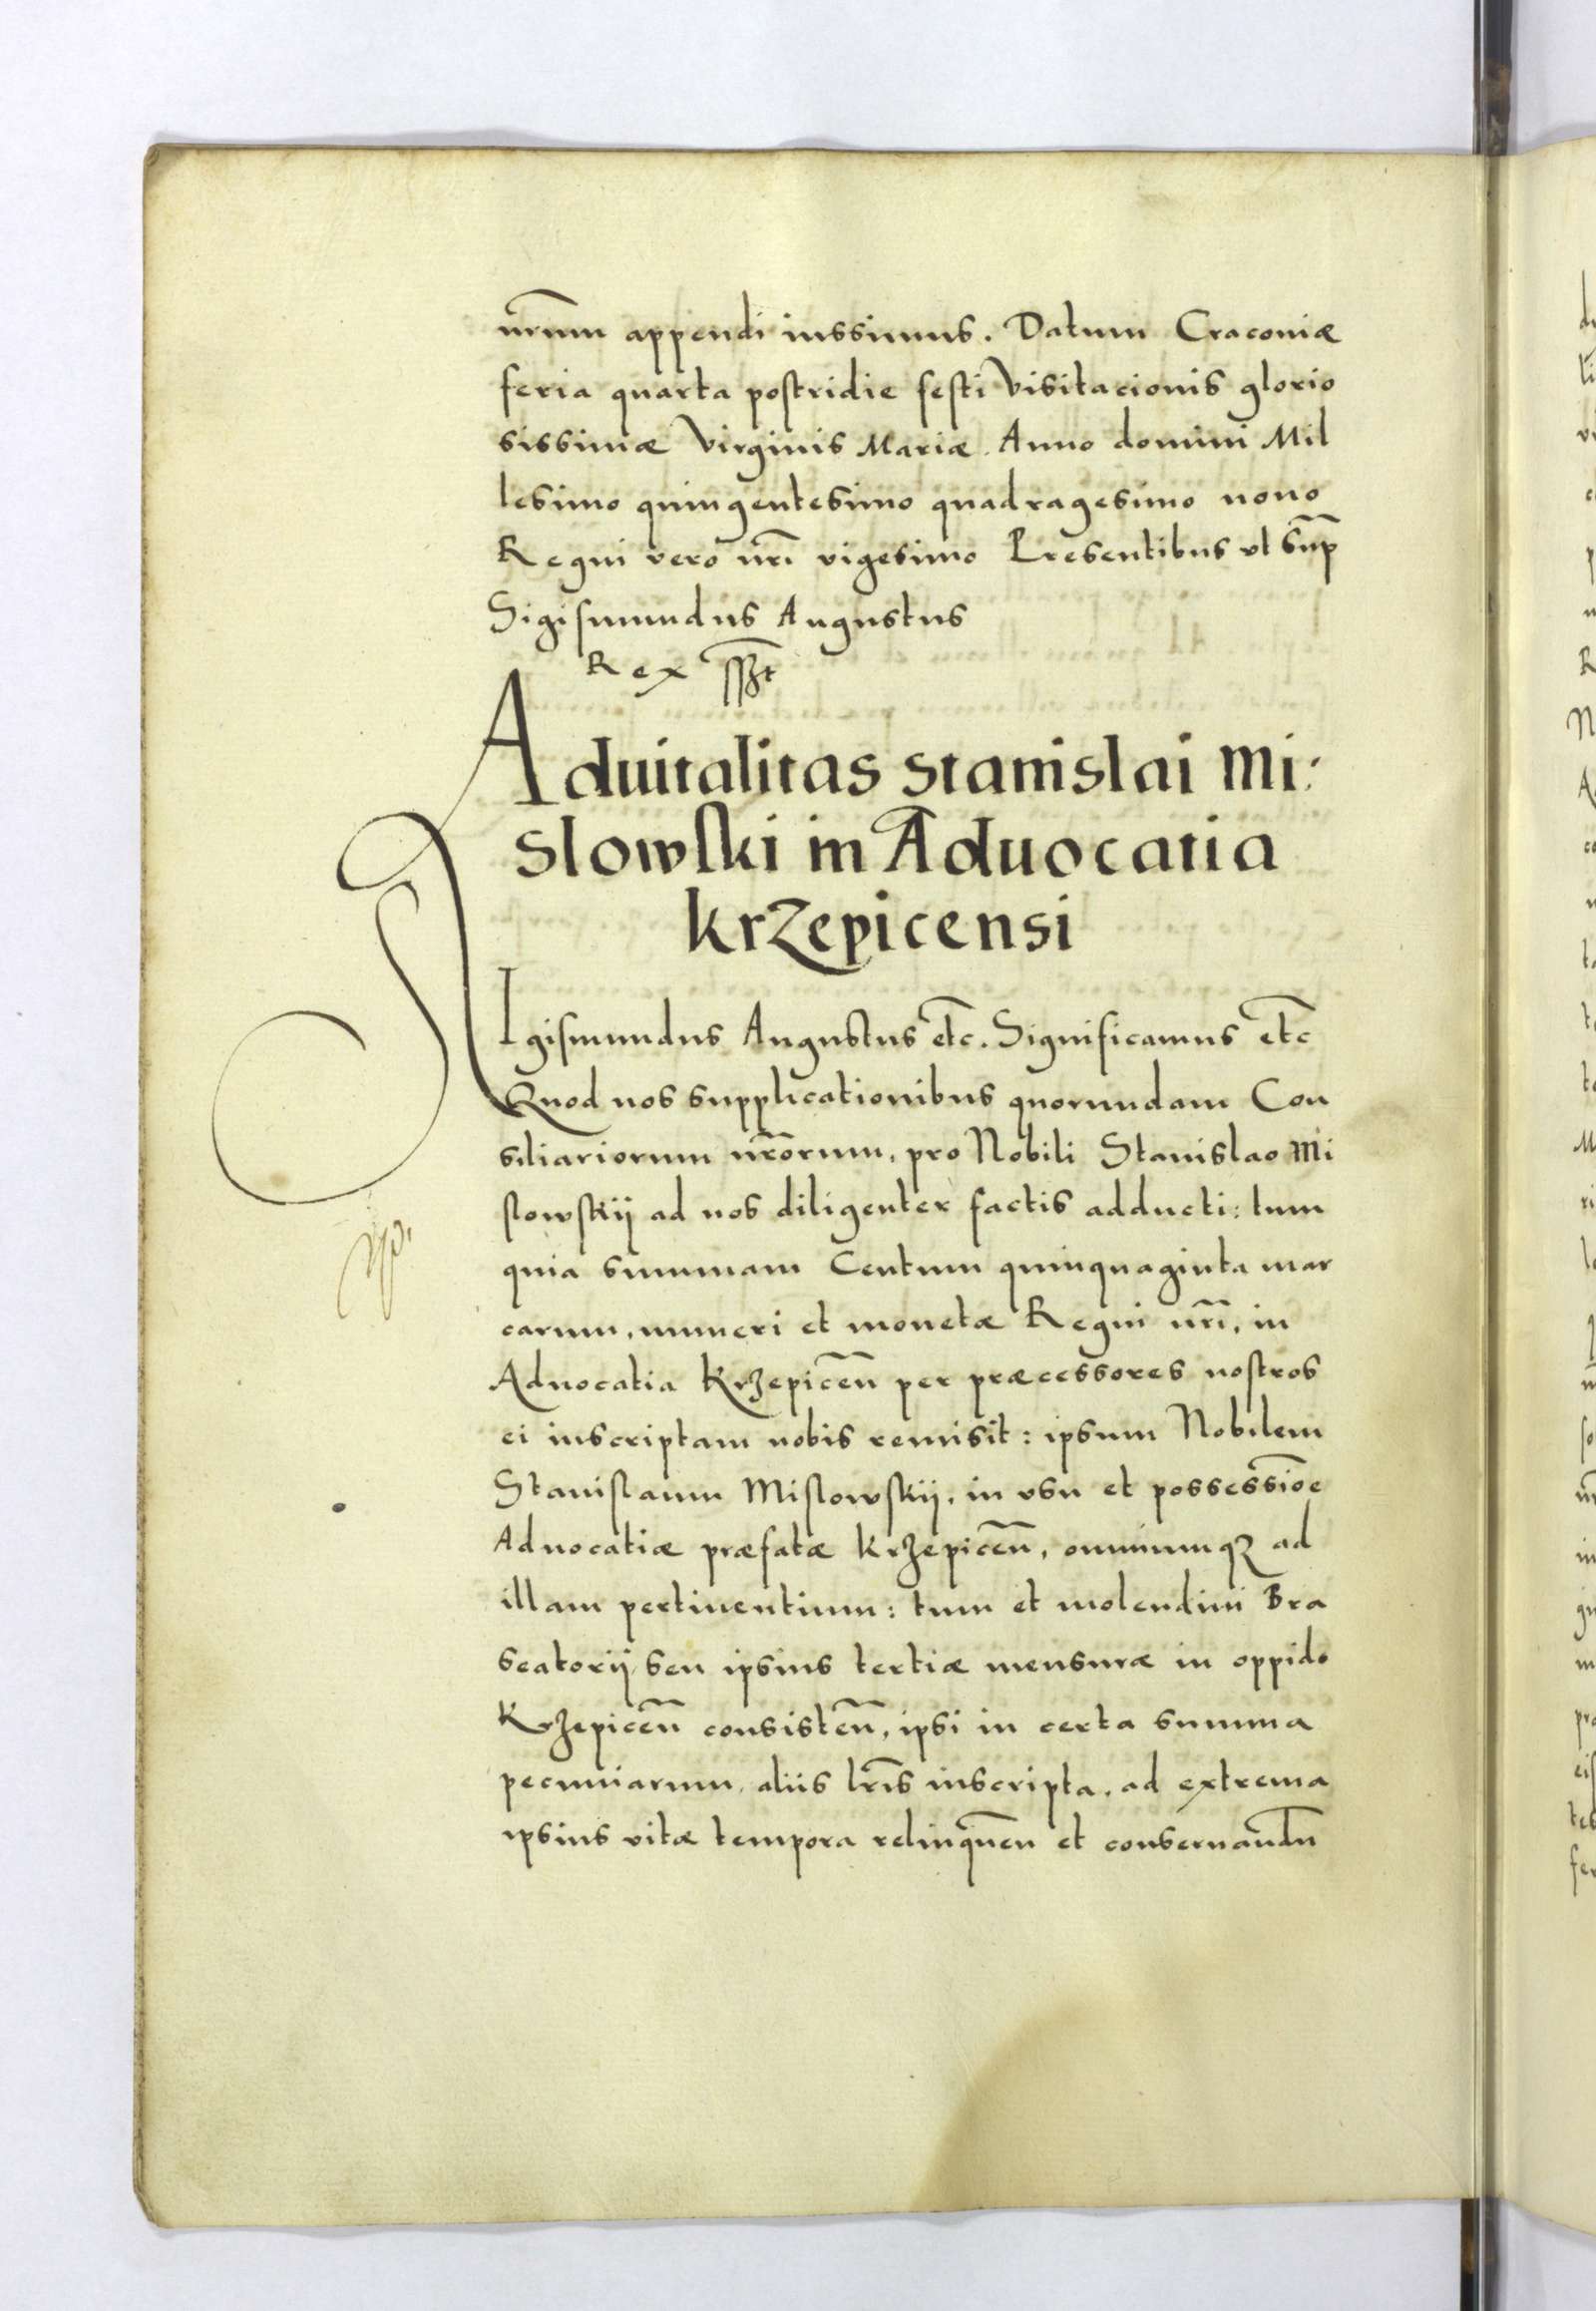 nr̄um appendi iussimus. Datum Cracouiæ
feria quarta postridie festi Visitacionis glorio
sissimæ Virginis Mariæ. Anno domini Mil
lesimo quingentesimo quadragesimo nono
Regni vero nr̄i vigesimo Presentibus vt sup̄
Sigismundus Augustus
Rex sst
Aduitalitas Stanislai Mi:
slowski in Aduocatia
krzepicensi
SIgismundus Augustus etc̄. Significamus etc̄
Quod nos supplicationibus quorundam Con
siliariorum nr̄orum, pro Nobili Stanislao Mi
slowskij ad nos diligenter factis adducti: tum
quia summam Centum quinquaginta mar
carum, numeri et monetæ Regni nr̄i, in
Aduocatia Krzepiceñ per præcessores nostros
ei inscriptam nobis remisit: ipsum Nobilem
Stanislaum Mislowskij, in vsu et possessiōe
Aduocatiæ præfatæ Krzepiceñ, omniumqꝫ ad
illam pertinentium: tum et molendini Bra
seatorij seu ipsius tertiæ mensuræ in oppido
Krzepiceñ consisteñ, ipsi in certa summa
pecuniarum, aliis lr̄is inscripta, ad extrema
ipsius vitæ tempora relinqueñ et conseruandū